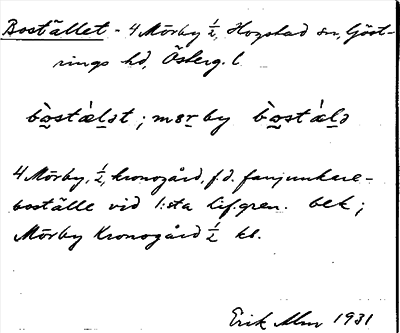 Bostället - 4 Mörby ½, Hogstad sn, Göst-
rings hd, Österg. l.
bo̱stálət; mɞrby bo̱stálə
4 Mörby, ½, kronogård, f.d. fanjunkare-
boställe vid 1:sta Lif.gren. bek;
Mörby Kronogård ½ kl.
Erik Alm 1931